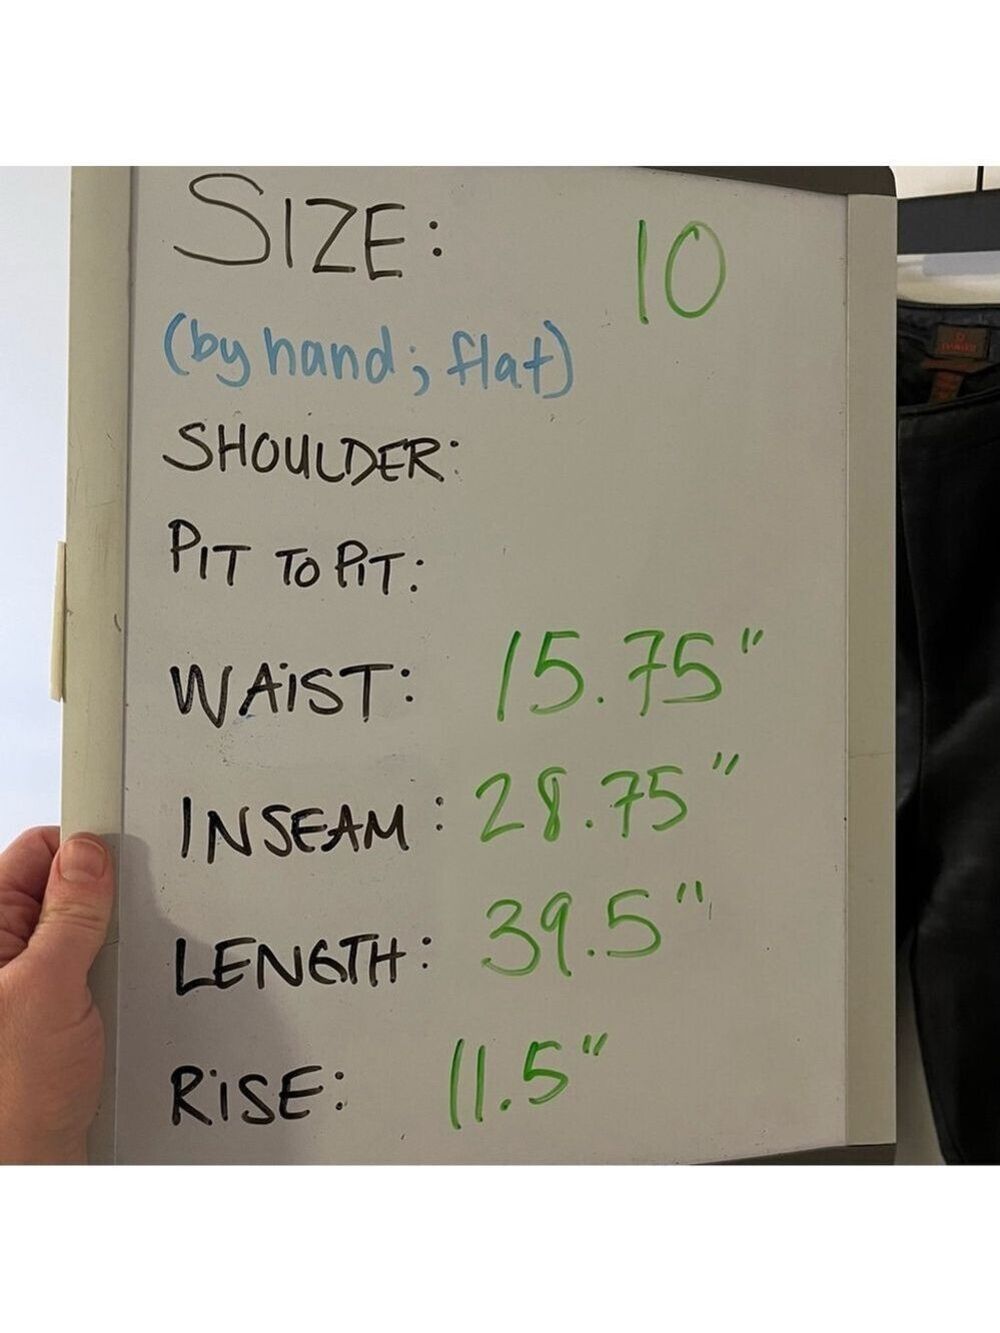 SIZE: 10
(by hand; flat)
SHOULDER:
PIT TO PIT:
WAIST: 15.75"
INSEAM: 28.75"
LENGTH: 39.5"
RISE: 11.5"